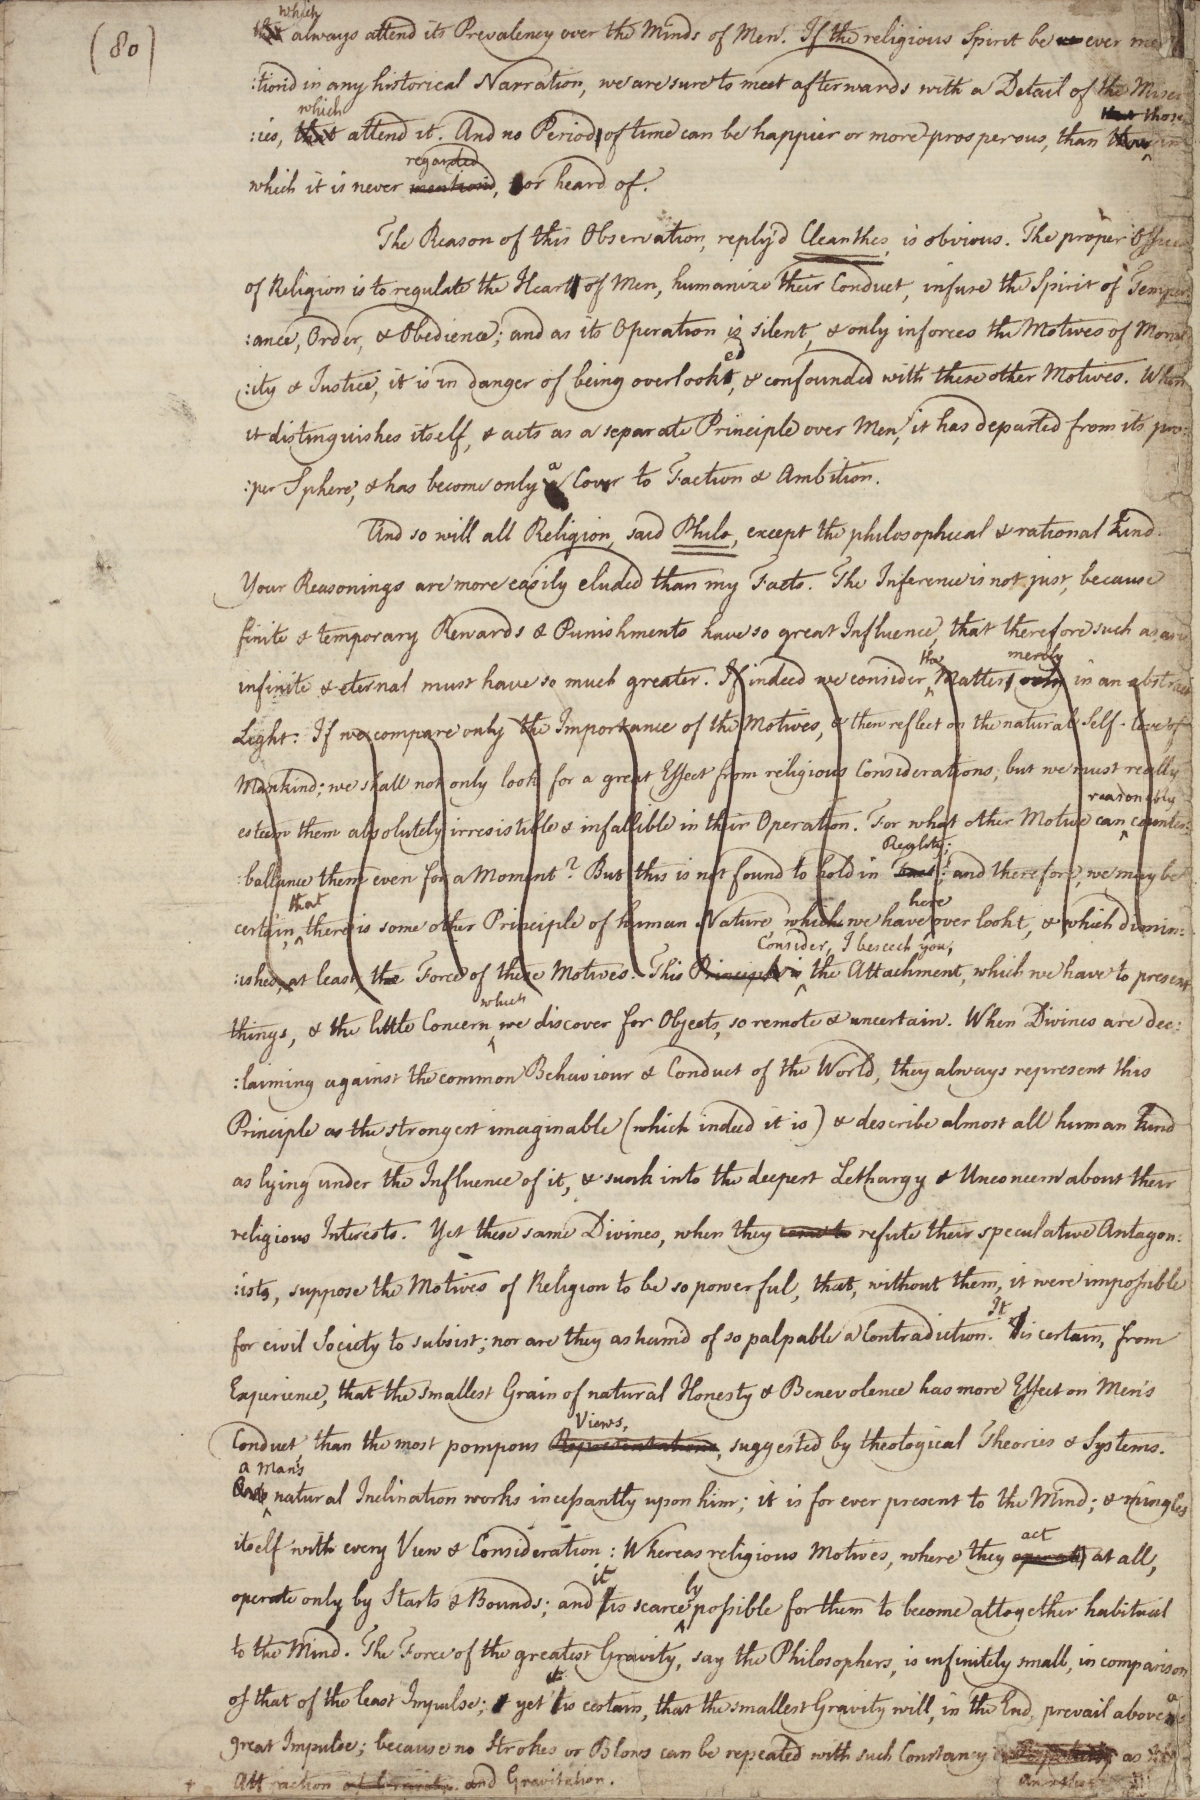 (80)
which
always attend its Prevalency over the Minds of Men. If the religious Spirit be ever men
:tiond in any historical Narration, we are sure to meet afterwards with a Detail of the Miser
which                                                                                         those
:ies, that attend it. And no Period of time can be happier or more prosperous, than in
regarded
which it is never mention'd, or heard of.
The Reason of this Observation, reply'd Cleanthes, is obvious. The proper Office
of Religion is to regulate the Heart of Men, humanize their Conduct, infuse the Spirit of Temper
:ance, Order, & Obedience; and as its Operation is silent, & only inforces the Motives of Moral
ed
:ity & Justice, it is in danger of being overlookt, & confounded with these other Motives. When
it distinguishes itself, & acts as a separate Principle over Men, it has departed from its pro:
a
:per Sphere, & has become only Cover to Faction & Ambition.
And so will all Religion, said Philo, except the philosophical & rational kind.
Your Reasonings are more easily eluded than my Facts. The Inference is not just, because
finite & temporary Rewards & Punishments have so great Influence, that therefore such as are
the merely
infinite & eternal must have so much greater. If indeed we consider Matters only in an abstract
Light: If we compare only the Importance of the Motives, & then reflect on the natural Self-love of
Mankind; we shall not only look for a great Effect from religious Considerations; but we must really
reasonably
esteem them absolutely irresistible & infallible in their Operation. For what other Motive can counter:
Reality;
:ballance them even for a Moment? But this is not found to hold in fact; and therefore, we may be
that here
certain, there is some other Principle of human Nature which we have over lookt, & which dimin:
Consider, I beseech you,
:ishes, at least, the Force of these Motives. This Principle is the Attachment, which we have to present
which
things, & the little Concern we discover for Objects, so remote & uncertain. When Divines are dec:
:laiming against the common Behaviour & Conduct of the World, they always represent this
Principle as the strongest imaginable (which indeed it is) & describe almost all human kind
as lying under the Influence of it, & sunk into the deepest Lethargy & Unconcern about their
religious Interests. Yet these same Divines, when they come to refute their speculative Antagon:
:ists, suppose the Motives of Religion to be so powerful, that, without them, it were impossible
It
for civil Society to subsist; nor are they asham'd of so palpable a Contradiction. is certain, from
Experience, that the smallest Grain of natural Honesty & Benevolence has more Effect on Men's
Views,
Conduct than the most pompous Representations, suggested by theological Theories & Systems.
a Man's
natural Inclination works incessantly upon him; it is for ever present to the Mind; & mingles
act
itself with every View & Consideration: Whereas religious Motives, where they operate at all,
it ly
operate only by Starts & Bounds; and tis scarce possible for them to become altogether habitual
to the Mind. The Force of the greatest Gravity, say the Philosophers, is infinitely small, in comparison
it a
of that of the least Impulse; yet tis certain, that the smallest Gravity will, in the End, prevail above
great Impulse; because no Strokes or Blows can be repeated with such Constancy as
Attraction of Gravity. and Gravitation.